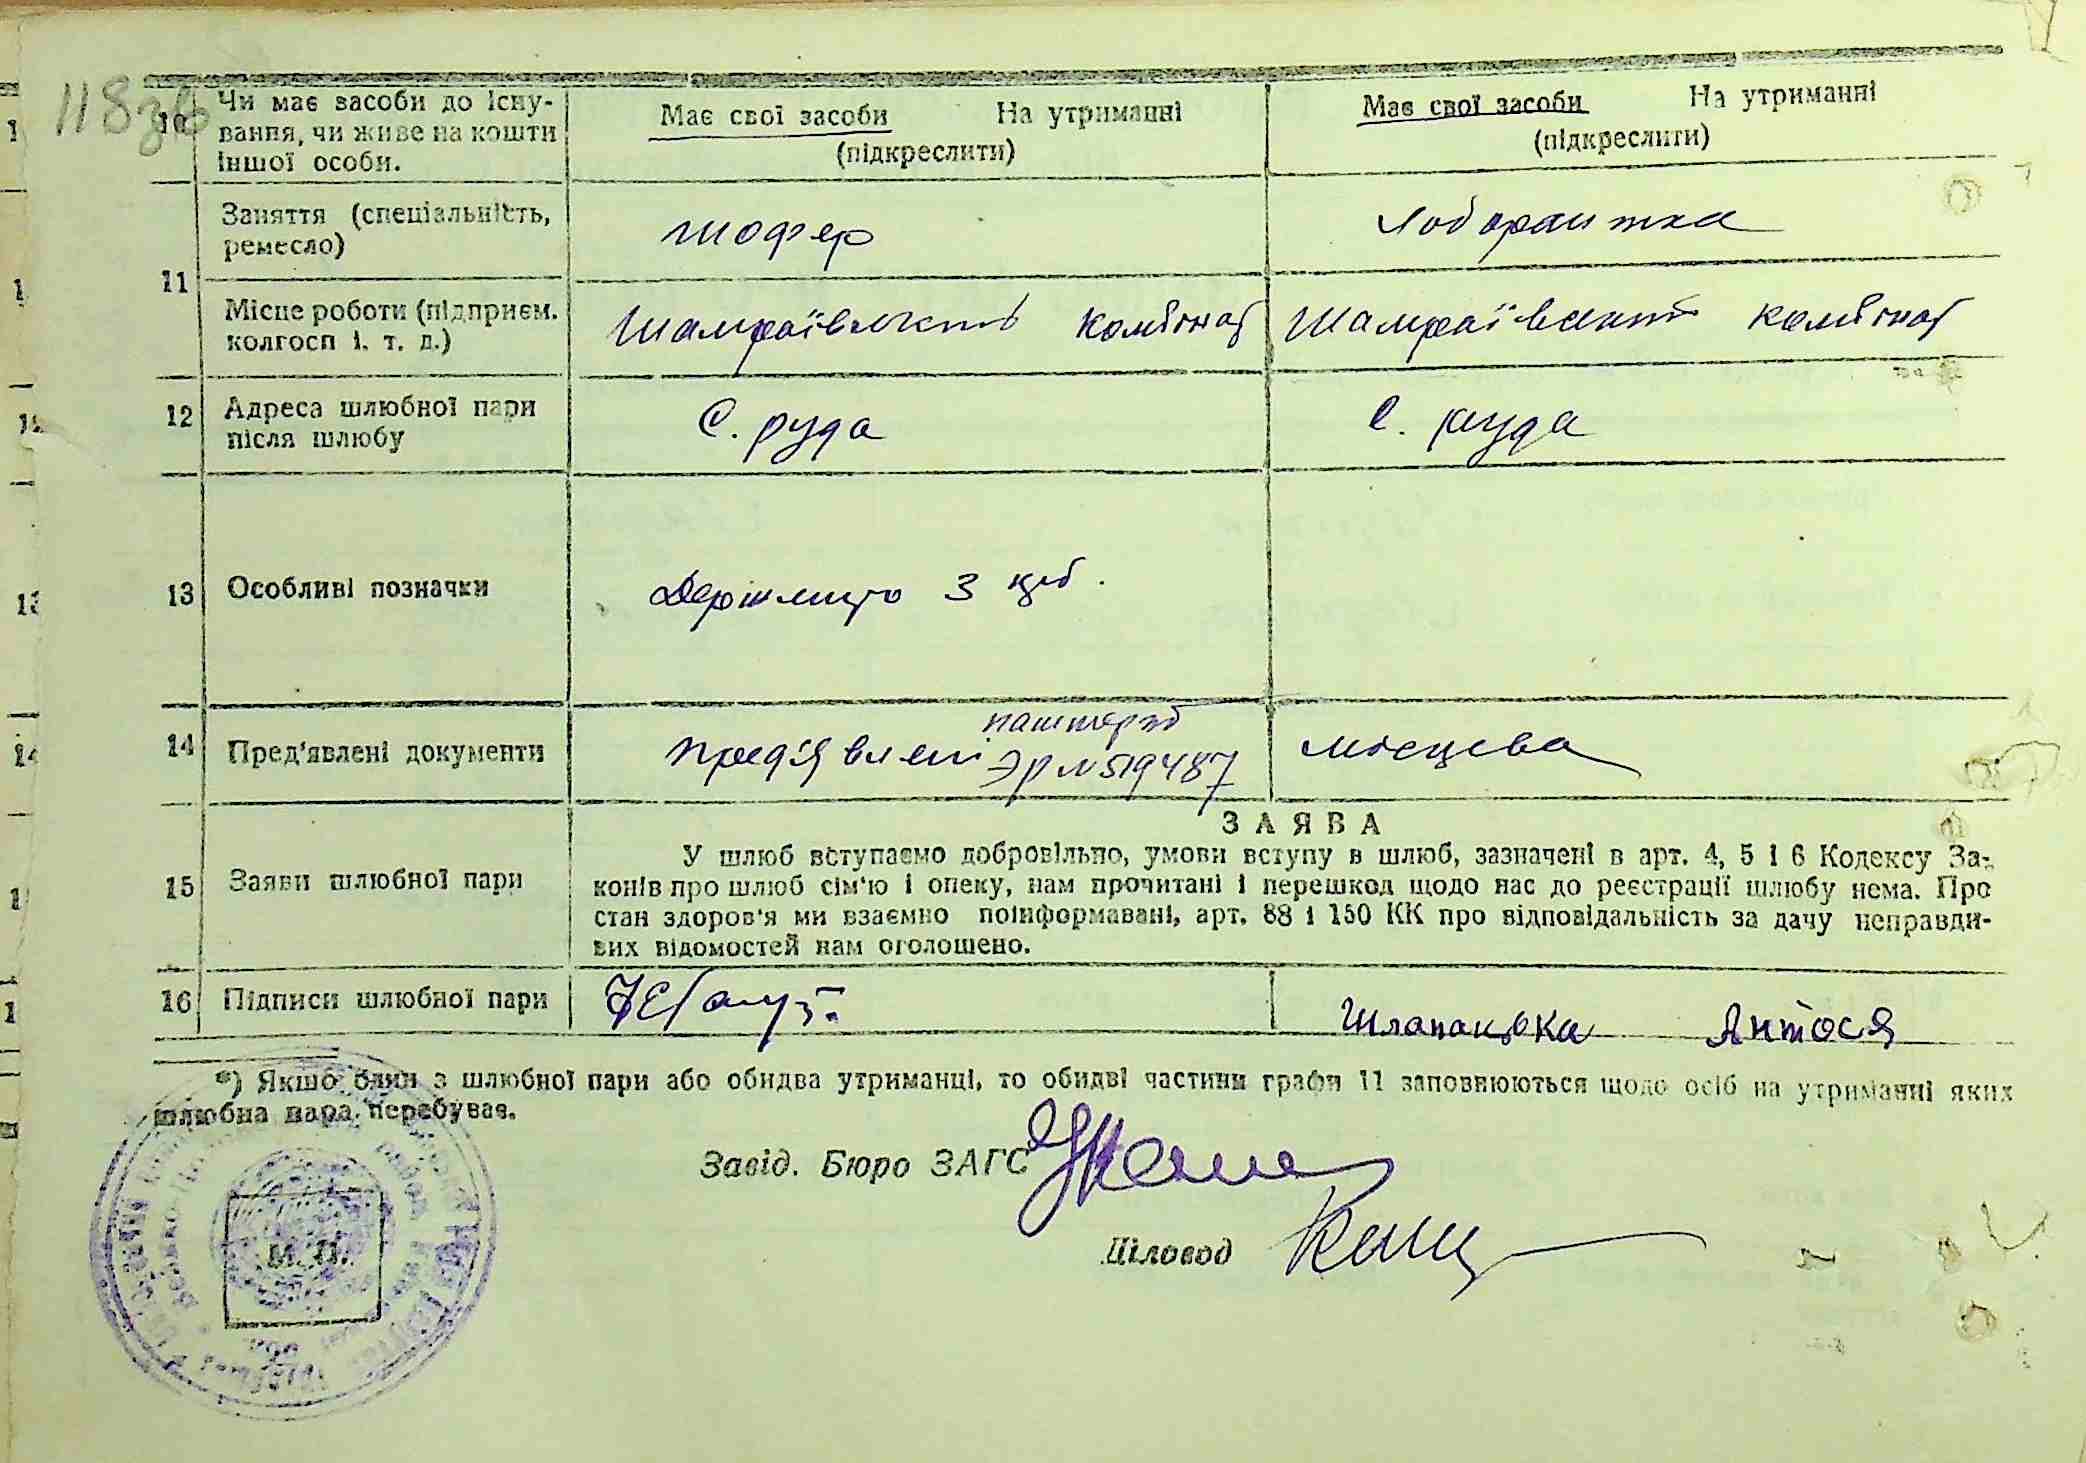 118зв
10 Чи має засоби до існу-
вання, чи живе на кошти
іншої особи.
Має свої засоби На утриманні
(підкреслити)
Має свої засоби На утриманні
(підкреслити)
11
Заняття (спеціальність,
ремесло)
шофер
Лаборантка
Місце роботи (підприєм.
колгосп і. т. д.)
Шамраївський комбінат
Шамраївський комбінат
12 Адреса шлюбної пари
після шлюбу
С. руда
С. руда
13 Особливі позначки
Держмито 3 крб.
14 Пред'явлені документи
пред'явлені
пашпорт
ЭР N 519487
місцева
15 Заяви шлюбної пари
ЗАЯВА
У шлюб вступаємо добровільно, умови вступу в шлюб, зазначені в арт. 4, 5 і 6 Кодексу За-
конів про шлюб сім'ю і опеку, нам прочитані і перешкод щодо нас до реєстрації шлюбу нема. Про
стан здоров'я ми взаємно поінформавані, арт. 88 і 150 КК про відповідальність за дачу неправди-
вих відомостей нам оголошено.
16 Підписи шлюбної пари
Шлапацька Антося
*) Якшо один з шлюбної пари або обидва утриманці, то обидві частини графи 11 заповнюються щодо осіб на утриманні яких
шлюбна пара перебуває.
Завід. Бюро ЗАГС
Діловод
М. П.